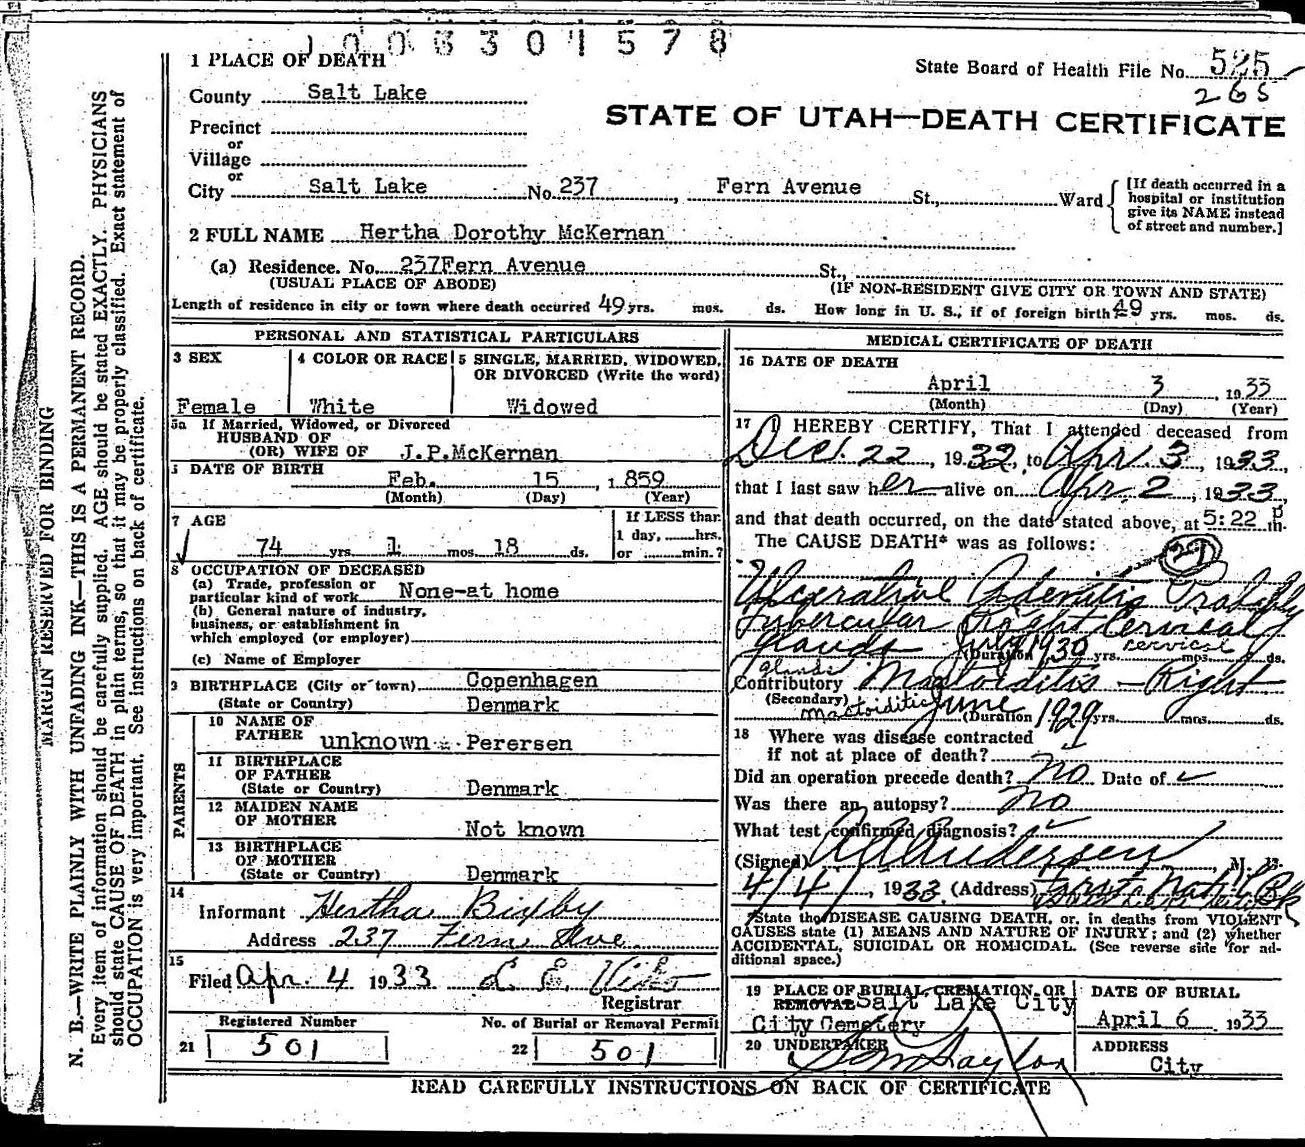 1003301578
1 PLACE OF DEATH
State Board of Health File No. 525
265
County Salt Lake
STATE OF UTAH—DEATH CERTIFICATE
Precinct
or
Village
or
City Salt Lake No. 237, Fern Avenue St., Ward
[If death occurred in a
hospital or institution
give its NAME instead
of street and number.]
2 FULL NAME Hertha Dorothy McKernan
(a) Residence. No. 237Fern Avenue St.,
(USUAL PLACE OF ABODE) (IF NON-RESIDENT GIVE CITY OR TOWN AND STATE)
Length of residence in city or town where death occurred 49 yrs. mos. ds. How long in U. S., if of foreign birth 49 yrs. mos. ds.
PERSONAL AND STATISTICAL PARTICULARS
3 SEX
Female
4 COLOR OR RACE
White
5 SINGLE, MARRIED, WIDOWED,
OR DIVORCED (Write the word)
Widowed
5a If Married, Widowed, or Divorced
HUSBAND OF
(OR) WIFE OF J.P.McKernan
DATE OF BIRTH
Feb. 15, 1859
(Month) (Day) (Year)
7 AGE
74 yrs. 1 mos. 18 ds.
If LESS than
1 day, hrs.
or min.?
8 OCCUPATION OF DECEASED
(a) Trade, profession or
particular kind of work None-at home
(b) General nature of industry,
business, or establishment in
which employed (or employer)
(c) Name of Employer
9 BIRTHPLACE (City or town) Copenhagen
(State or Country) Denmark
PARENTS
10 NAME OF
FATHER unknown - Perersen
11 BIRTHPLACE
OF FATHER
(State or Country) Denmark
12 MAIDEN NAME
OF MOTHER Not known
13 BIRTHPLACE
OF MOTHER
(State or Country) Denmark
14
Informant Hertha Bixby
Address 237 Fern Ave
15
Filed Apr. 4 1933 L. E.
Registrar
Registered Number
21 501
No. of Burial or Removal Permit
22 501
MEDICAL CERTIFICATE OF DEATH
16 DATE OF DEATH
April 3, 1933
(Month) (Day) (Year)
17 I HEREBY CERTIFY, That I attended deceased from
Dec. 22, 1932, to Apr. 3 1933
that I last saw her alive on Apr. 2, 1933,
and that death occurred, on the date stated above, at 5:22 P m.
The CAUSE DEATH* was as follows:
Ulcerative Adenitis Probably
Tubercular Right Cervical
Glands July 1930 (Duration yrs. mos. ds.
cervical
glands
Contributory Mastoiditis - Right
(Secondary)
mastoiditis June 1929 (Duration yrs. mos. ds.
18 Where was disease contracted
if not at place of death?
Did an operation precede death? No Date of
Was there an autopsy? no
What test confirmed diagnosis?
(Signed) Andersen, M. D.
4/4/, 1933 (Address) First Nat'l Bk
*State the DISEASE CAUSING DEATH, or, in deaths from VIOLENT
CAUSES state (1) MEANS AND NATURE OF INJURY; and (2) whether
ACCIDENTAL, SUICIDAL OR HOMICIDAL. (See reverse side for ad-
ditional space.)
19 PLACE OF BURIAL, CREMATION, OR
REMOVAL Salt Lake City
City Cemetery
DATE OF BURIAL
April 6, 1933
20 UNDERTAKER
Taylor
ADDRESS
City
READ CAREFULLY INSTRUCTIONS ON BACK OF CERTIFICATE
MARGIN RESERVED FOR BINDING
N. B.—WRITE PLAINLY WITH UNFADING INK—THIS IS A PERMANENT RECORD.
Every item of information should be carefully supplied. AGE should be stated EXACTLY. PHYSICIANS
should state CAUSE OF DEATH in plain terms, so that it may be properly classified. Exact statement of
OCCUPATION is very important. See instructions on back of certificate.